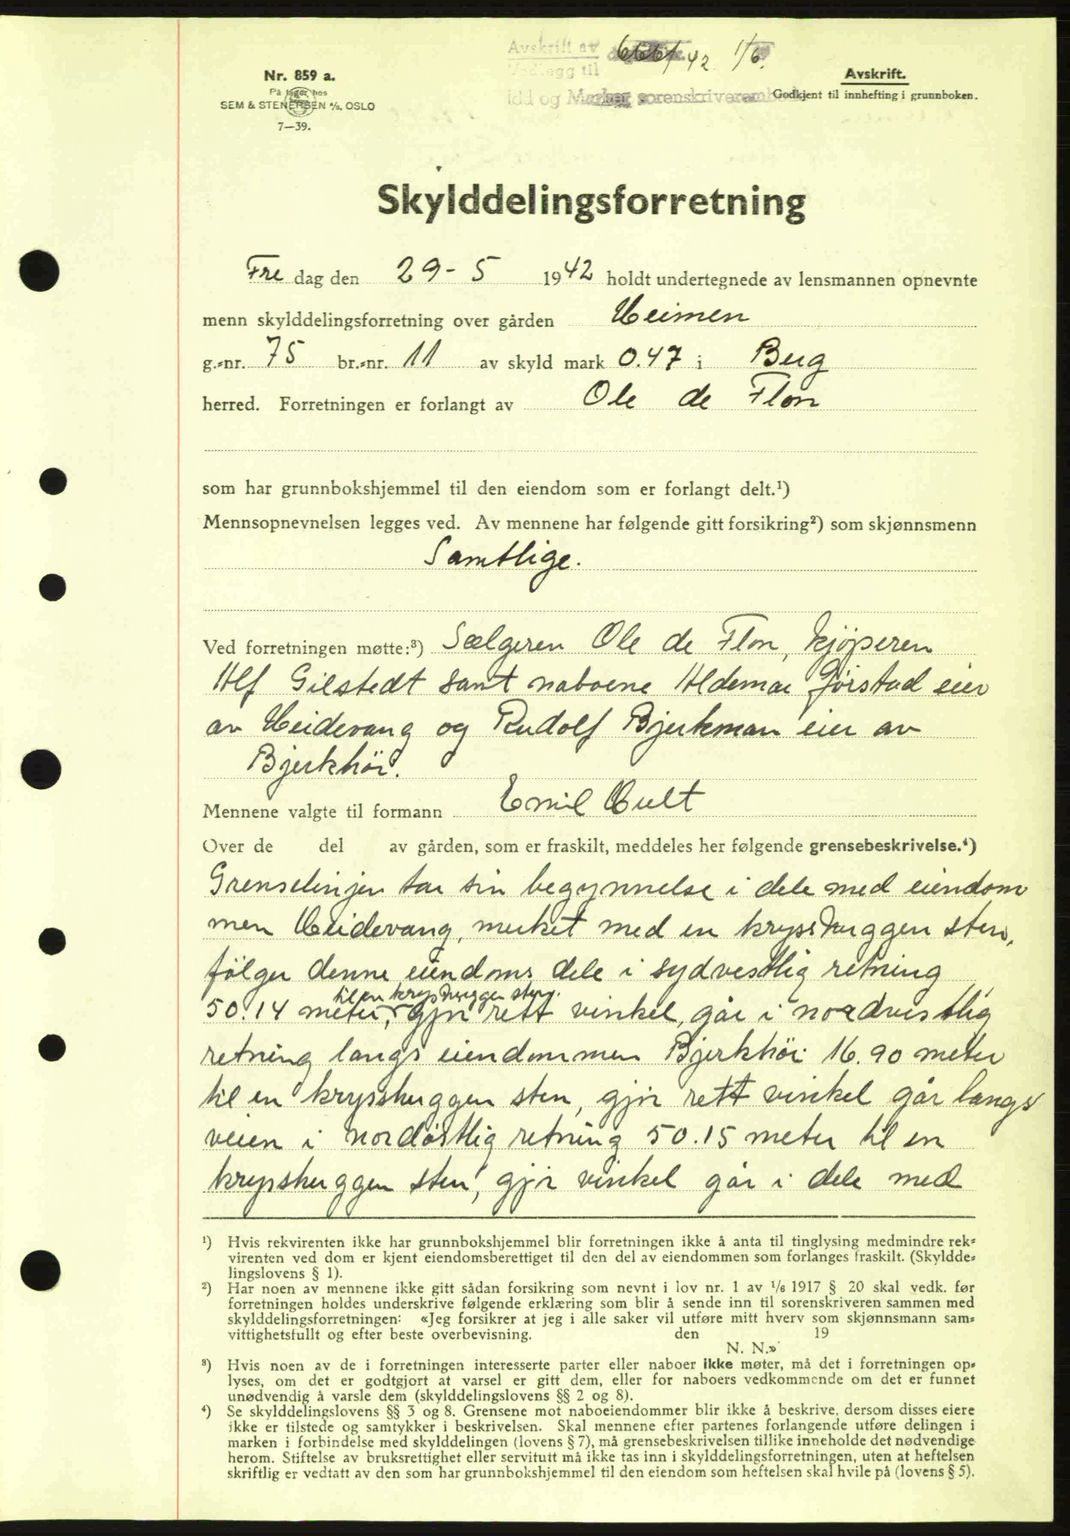 Avskrift av 666/42 1/6.
Vedlegg til
Idd og Marker sorenskriverembede
Nr. 859 a.
På lager hos
SEM & STENERSEN A/S, OSLO
7—39.
Avskrift.
Godkjent til innhefting i grunnboken.
Skylddelingsforretning
Fre dag den 29 - 5 1942 holdt undertegnede av lensmannen opnevnte
menn skylddelingsforretning over gården Heimen
g.-nr. 75 br.-nr. 11 av skyld mark 0.47 i Berg
herred. Forretningen er forlangt av Ole de Flon
som har grunnbokshjemmel til den eiendom som er forlangt delt.¹)
Mennsopnevnelsen legges ved. Av mennene har følgende gitt forsikring²) som skjønnsmenn
Samtlige.
Ved forretningen møtte:³) Sælgeren Ole de Flon, kjøperen
Alf Gilstedt samt naboene Aldemar Gjøistad eier
av Heidevang og Rudolf Bjerkman eier av
Bjerkhöi.
Mennene valgte til formann Emil Hult
Over de del av gården, som er fraskilt, meddeles her følgende grensebeskrivelse.⁴)
Grenselinjen tar sin begynnelse i dele med eiendom
men Heidevang, merket med en krysshuggen sten,
følger denne eiendoms dele i sydvestlig retning
til en krysshuggen sten.
50.14 meter, gjør rett vinkel, går i nordvestlig
retning langs eiendommen Bjerkhöi 16.90 meter
til en krysshuggen sten, gjør rett vinkel går langs
veien i nordöstlig retning 50.15 meter til en
krysshuggen sten, gjör vinkel går i dele med
¹) Hvis rekvirenten ikke har grunnbokshjemmel blir forretningen ikke å anta til tinglysing medmindre rek-
virenten ved dom er kjent eiendomsberettiget til den del av eiendommen som forlanges fraskilt. (Skyldde-
lingslovens § 1).
²) Har noen av mennene ikke gitt sådan forsikring som nevnt i lov nr. 1 av 1/6 1917 § 20 skal vedk. før
forretningen holdes underskrive følgende erklæring som blir å sende inn til sorenskriveren sammen med
skylddelingsforretningen: «Jeg forsikrer at jeg i alle saker vil utføre mitt hverv som skjønnsmann sam-
vittighetsfullt og efter beste overbevisning. den 19
N. N.»
³) Hvis noen av de i forretningen interesserte parter eller naboer ikke møter, må det i forretningen op-
lyses, om det er godtgjort at varsel er gitt dem, eller for naboers vedkommende om det er funnet
unødvendig å varsle dem (skylddelingslovens §§ 2 og 8).
⁴) Se skylddelingslovens §§ 3 og 8. Grensene mot naboeiendommer blir ikke å beskrive, dersom disses eiere
ikke er tilstede og samtykker i beskrivelsen. Skal mennene efter partenes forlangende utføre delingen i
marken i forbindelse med skylddelingen (lovens § 7), må grensebeskrivelsen tillike inneholde det nødvendige
herom. Stiftelse av bruksrettighet eller servitutt må ikke tas inn i skylddelingsforretningen, uten at heftelsen
skriftlig er vedtatt av den som har grunnbokshjemmel til den eiendom som heftelsen skal hvile på (lovens § 5).